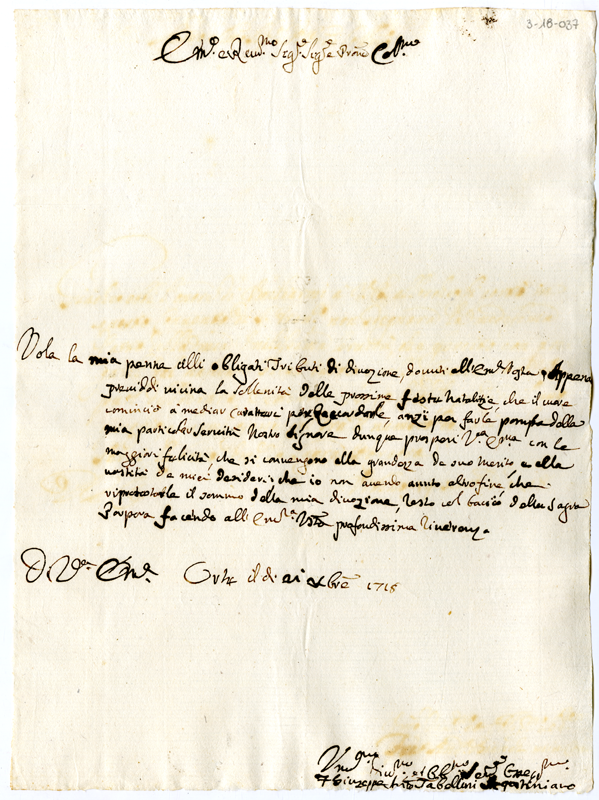 3-18-037
Em.º e Reu.mo Sig.e Sig.e Prone Coll.mo
Vola la mia penna alli obligati Tributi di divozione, dovuti all'Em.za Vostra, Appena
previddi vicina la sollennità delle prossime feste Natalizie, che il cuore
cominciò à mediar caratteri per, anzi per farle pompa della
mia particolar servitù Nostro Signore dunque prosperi V.ra Em.a con le
maggiori felicità, che si convengono alla grandezza de suo merito e alla
vastità de miei desiderij che io non avendo avuto altro fine che
il sommo della mia divozione, resto col bacio della Sagra
Porpora facendo all'Em.a V.ra profondissima riverenza.
Di V.ra Em.a il di Xbre 1718
Um.mo et Obb.mo Ser.e
F Giuseppe Tabellini Agostiniano